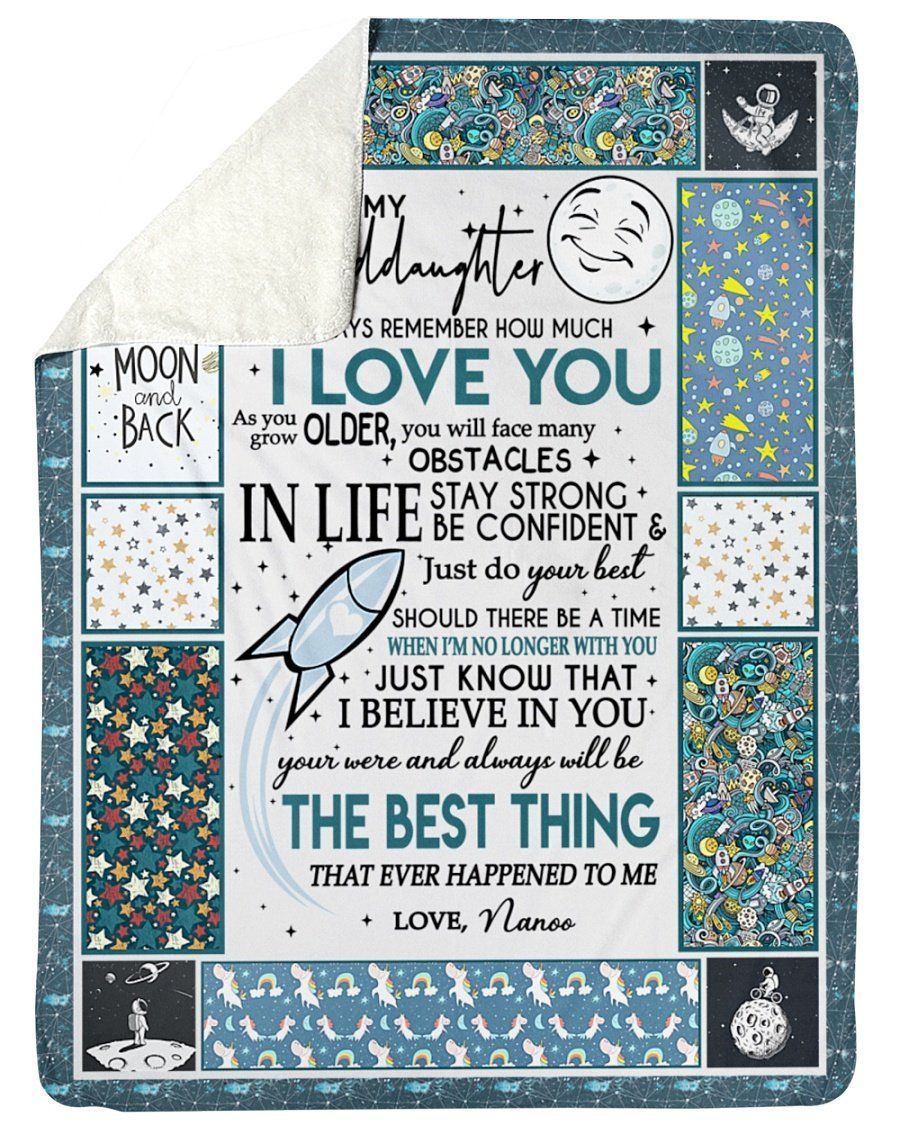 MY
ddaughter
YS REMEMBER HOW MUCH
I LOVE YOU
As you
grow OLDER, you will face many
OBSTACLES
IN LIFE STAY STRONG
BE CONFIDENT &
Just do your best
SHOULD THERE BE A TIME
WHEN I'M NO LONGER WITH YOU
JUST KNOW THAT
I BELIEVE IN YOU
your were and always will be
THE BEST THING
THAT EVER HAPPENED TO ME
LOVE, Nanoo
MOON
and
BACK